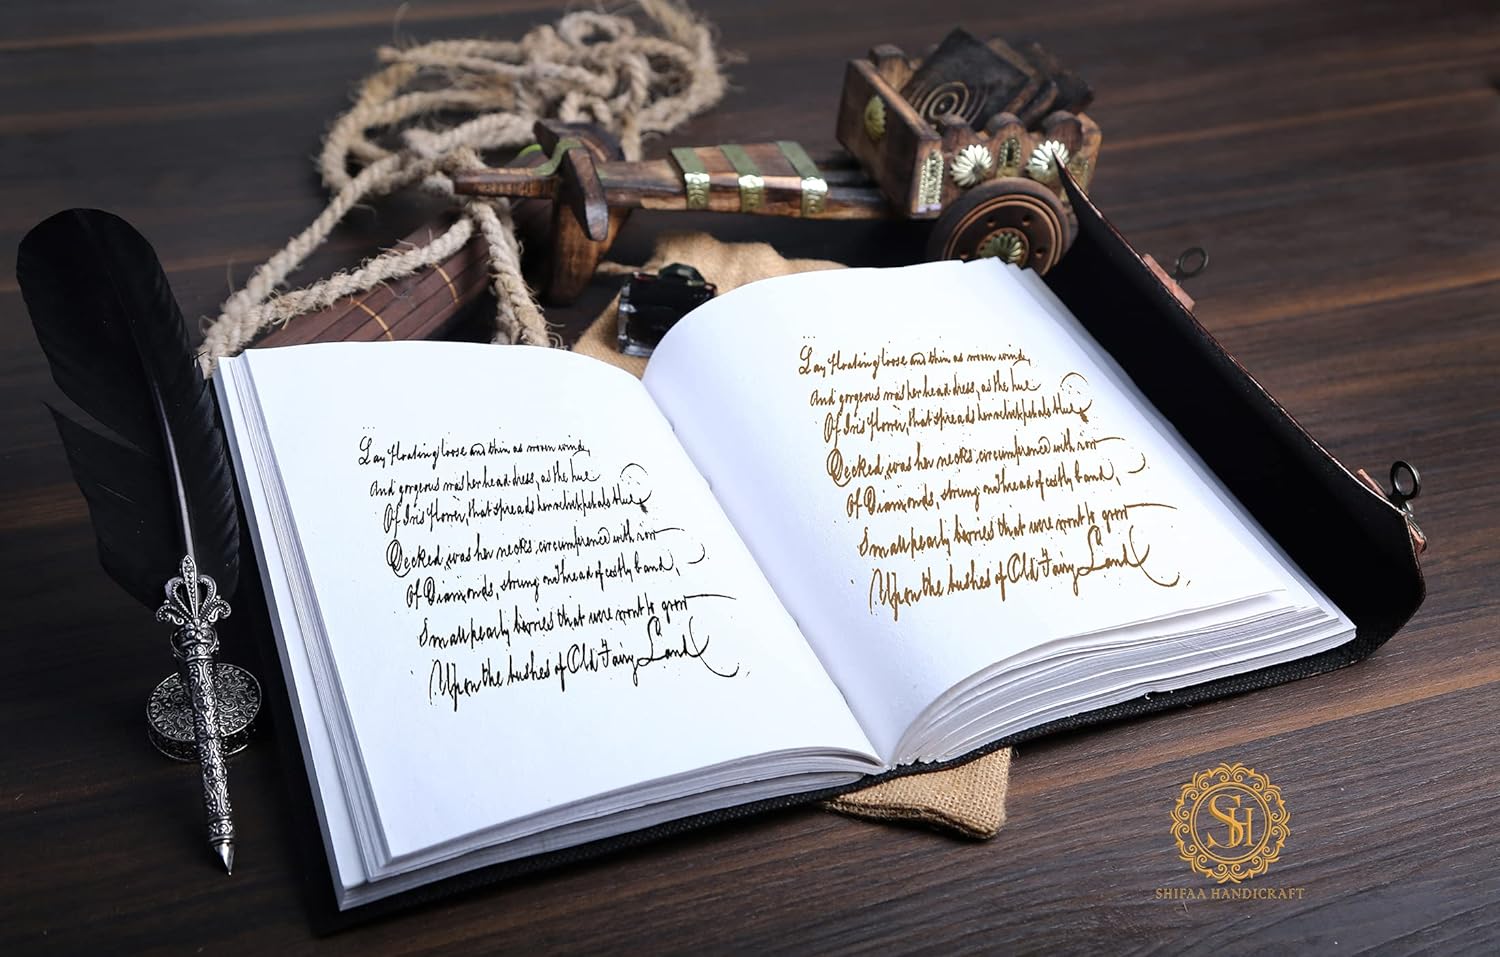 Lay floating loose and thin as woven wind,
And gorgeous was her head-dress, as the hue
Of Iris flower, that spreads her velvet petals blue
Decked was her neck's circumference with row
Of Diamonds, strung on thread of costly band,
Small pearly berries that were wont to grow
Upon the bushes of Old Fairy Land
Lay floating loose and thin as woven wind,
And gorgeous was her head-dress, as the hue
Of Iris flower, that spreads her velvet petals blue
Decked was her neck's circumference with row
Of Diamonds, strung on thread of costly band,
Small pearly berries that were wont to grow
Upon the bushes of Old Fairy Land
SH
SHIFAA HANDICRAFT